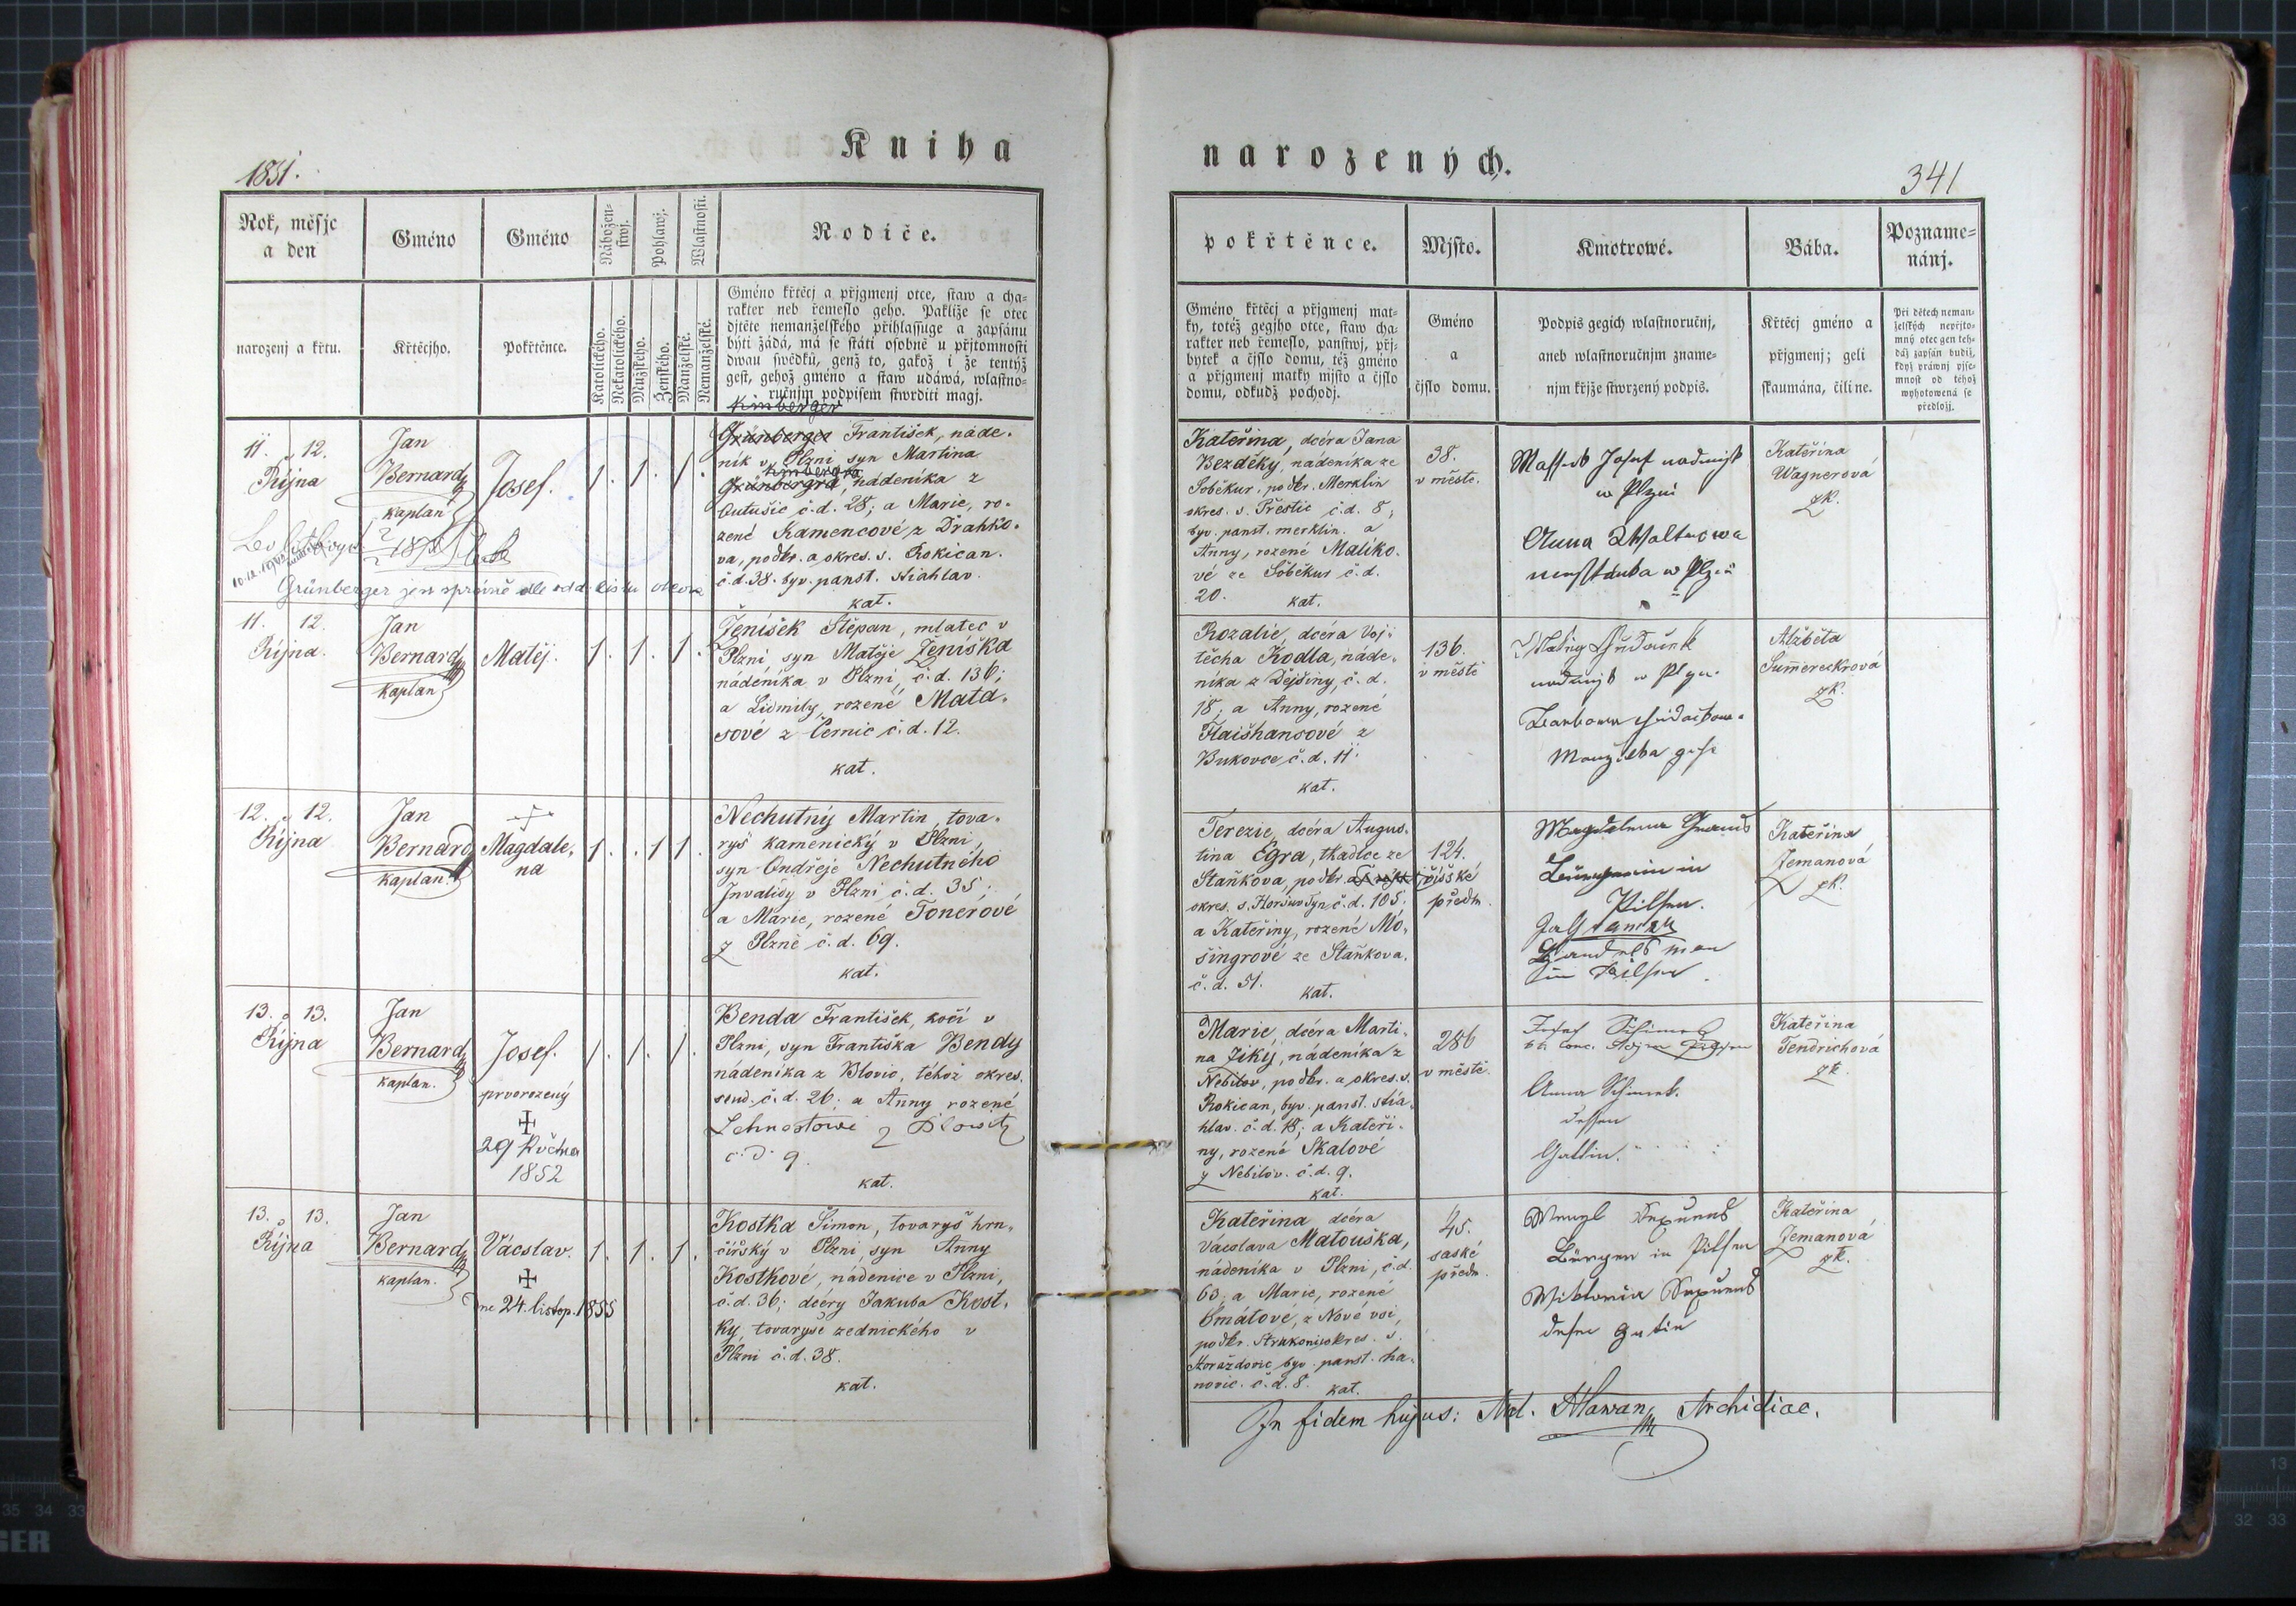 Kniha
narozených.
1851.
341
Rok, měsjc
a den
Gméno
Gméno
Nábožen-
stwj.
Pohlawj.
Wlastnosti.
Rodiče.
narozenj a křtu.
Křtěcjho.
Pokřtěnce.
Katolického.
Nekatolického.
Mužského.
Ženského.
Manželské.
Nemanželské.
Gméno křtěcj a přjgmenj otce, staw a cha=
rakter neb řemeslo geho. Pakliže se otec
djtěte nemanželského přihlassuge a zapsánu
býti žádá, má se státi osobně u přjtomnosti
dwau swědků, genž to, gakož i že tentýž
gest, gehož gméno a staw udáwá, wlastno-
ručnjm podpisem stwrditi magj.
pokřtěnce.
Mjsto.
Kmotrowé.
Bába.
Pozname=
nánj.
Gméno křtěcj a přjgmenj mat=
ky, totéž gegjho otce, staw cha=
rakter neb řemeslo, panstwj, přj=
bytek a čjslo domu, též gméno
a přjgmenj matky mjsto a čjslo
domu, odkudž pochodj.
Gméno
a
čjslo domu.
Podpis gegich wlastnoručnj,
aneb wlastnoručnjm zname=
njm křjže stwrzený podpis.
Křtěcj gméno a
přjgmenj; geli
skaumána, čili ne.
Při dětech neman=
želských nepřjto=
mný otec gen teh=
dáž zapsán budiž,
když práwnj pjse=
mnost od téhož
wyhotowená se
předložj.
Kimberger
11. 12.
Října
Jan
Bernard
kaplan
Josef.
1. 1. 1.
Grünberger František, náde-
ník v Plzni syn Martina
Kimbergra
Grünbergra, nádeníka z
Outušic č. d. 28; a Marie, ro-
zené Kamencové z Drahko-
va, podkr. a okres. s. Rokican.
č. d. 38. byv. panst. Stiahlav.
kat.
Grünberger jest správně dle odd. listu otcova
Kateřina, dcéra Jana
Bezděky, nádeníka ze
Soběkur, podkr. Merklín
okres. s. Přeštic č. d. 8;
byv. panst. merklin. a
Anny, rozené Maliko-
vé ze Soběkur č. d.
20. kat.
38.
v městě.
Josef
w Plzni
Anna
w Plzni
Kateřina
Wagnerová
zk.
11. 12.
Října.
Jan
Bernard
kaplan
Matěj.
1. 1. 1.
Jeníšek Štěpan, mlatec v
Plzni, syn Matěje Jeníška
nádeníka v Plzni, č. d. 136;
a Lidmily, rozené Mata-
sové z Černic č. d. 12.
kat.
Rozalie, dcéra Voj-
těcha Kodla, náde-
níka z Dejšiny, č. d.
18; a Anny, rozené
Flaišhansové z
Bukovce č. d. 11.
kat.
136.
v městě
Alžběta
Summereckrová
zk.
12. 12.
Října
Jan
Bernard
kaplan.
Magdale-
na
1. 1 1.
Nechutný Martin, tova-
ryš kamenický v Plzni,
syn Ondřeje Nechutného
Invalidy v Plzni č. d. 35;
a Marie, rozené Tonerové
z Plzně č. d. 69.
kat.
Terezie, dcéra Augus-
tina Egra, tkadlce ze
Staňkova, podkr.
okres. s. Horšuv Týn č. d. 105;
a Kateřiny, rozené Mo-
šingrové ze Staňkova.
č. d. 51.
kat.
124.
předm.
Magdalena
Bürgerin in
Pilsen.
in Pilsen
Kateřina
Zemanová
zk.
13. 13.
Října
Jan
Bernard
kaplan.
Josef.
prvorozený
29 Května
1852
1. 1. 1.
Benda František, kočí v
Plzni, syn Františka Bendy
nádeníka z Blovic, téhož okres.
soud. č. d. 26. a Anny rozené
z Blowitz
č. d. 9.
kat.
Marie, dcéra Marti-
na Jiky, nádeníka z
Nebilov, podkr. a okres. s.
Rokican, byv. panst. stia-
hlav. č. d. 18; a Kateři-
ny, rozené Skalové
z Nebilov. č. d. 9.
kat.
286
v městě.
Anna
dessen
Gattin.
Kateřina
Tendrichová
zk.
13. 13.
Října
Jan
Bernard
kaplan.
Vácslav.
dne 24. listop. 1855
1. 1. 1.
Kostka Šimon, tovaryš hrn-
čířský v Plzni, syn Anny
Kostkové, nádenice v Plzni,
č. d. 36; dcéry Jakuba Kost-
ky, tovaryše zednického v
Plzni č. d. 38.
kat.
Kateřina dcéra
Vácslava Matouška,
nádeníka v Plzni, č. d.
63; a Marie, rozené
Cmalové, z Nové vsi,
podkr. Strakonic okres. s.
Horaždovic byv. panst. ha-
novic. č. d. 8. kat.
45.
saské
předm.
Wenzl
Bürger in Pilsen
Viktoria
dessen Gatin
Kateřina
Zemanová
zk.
In fidem hujus: Ant. Hlawan, Archidiac.